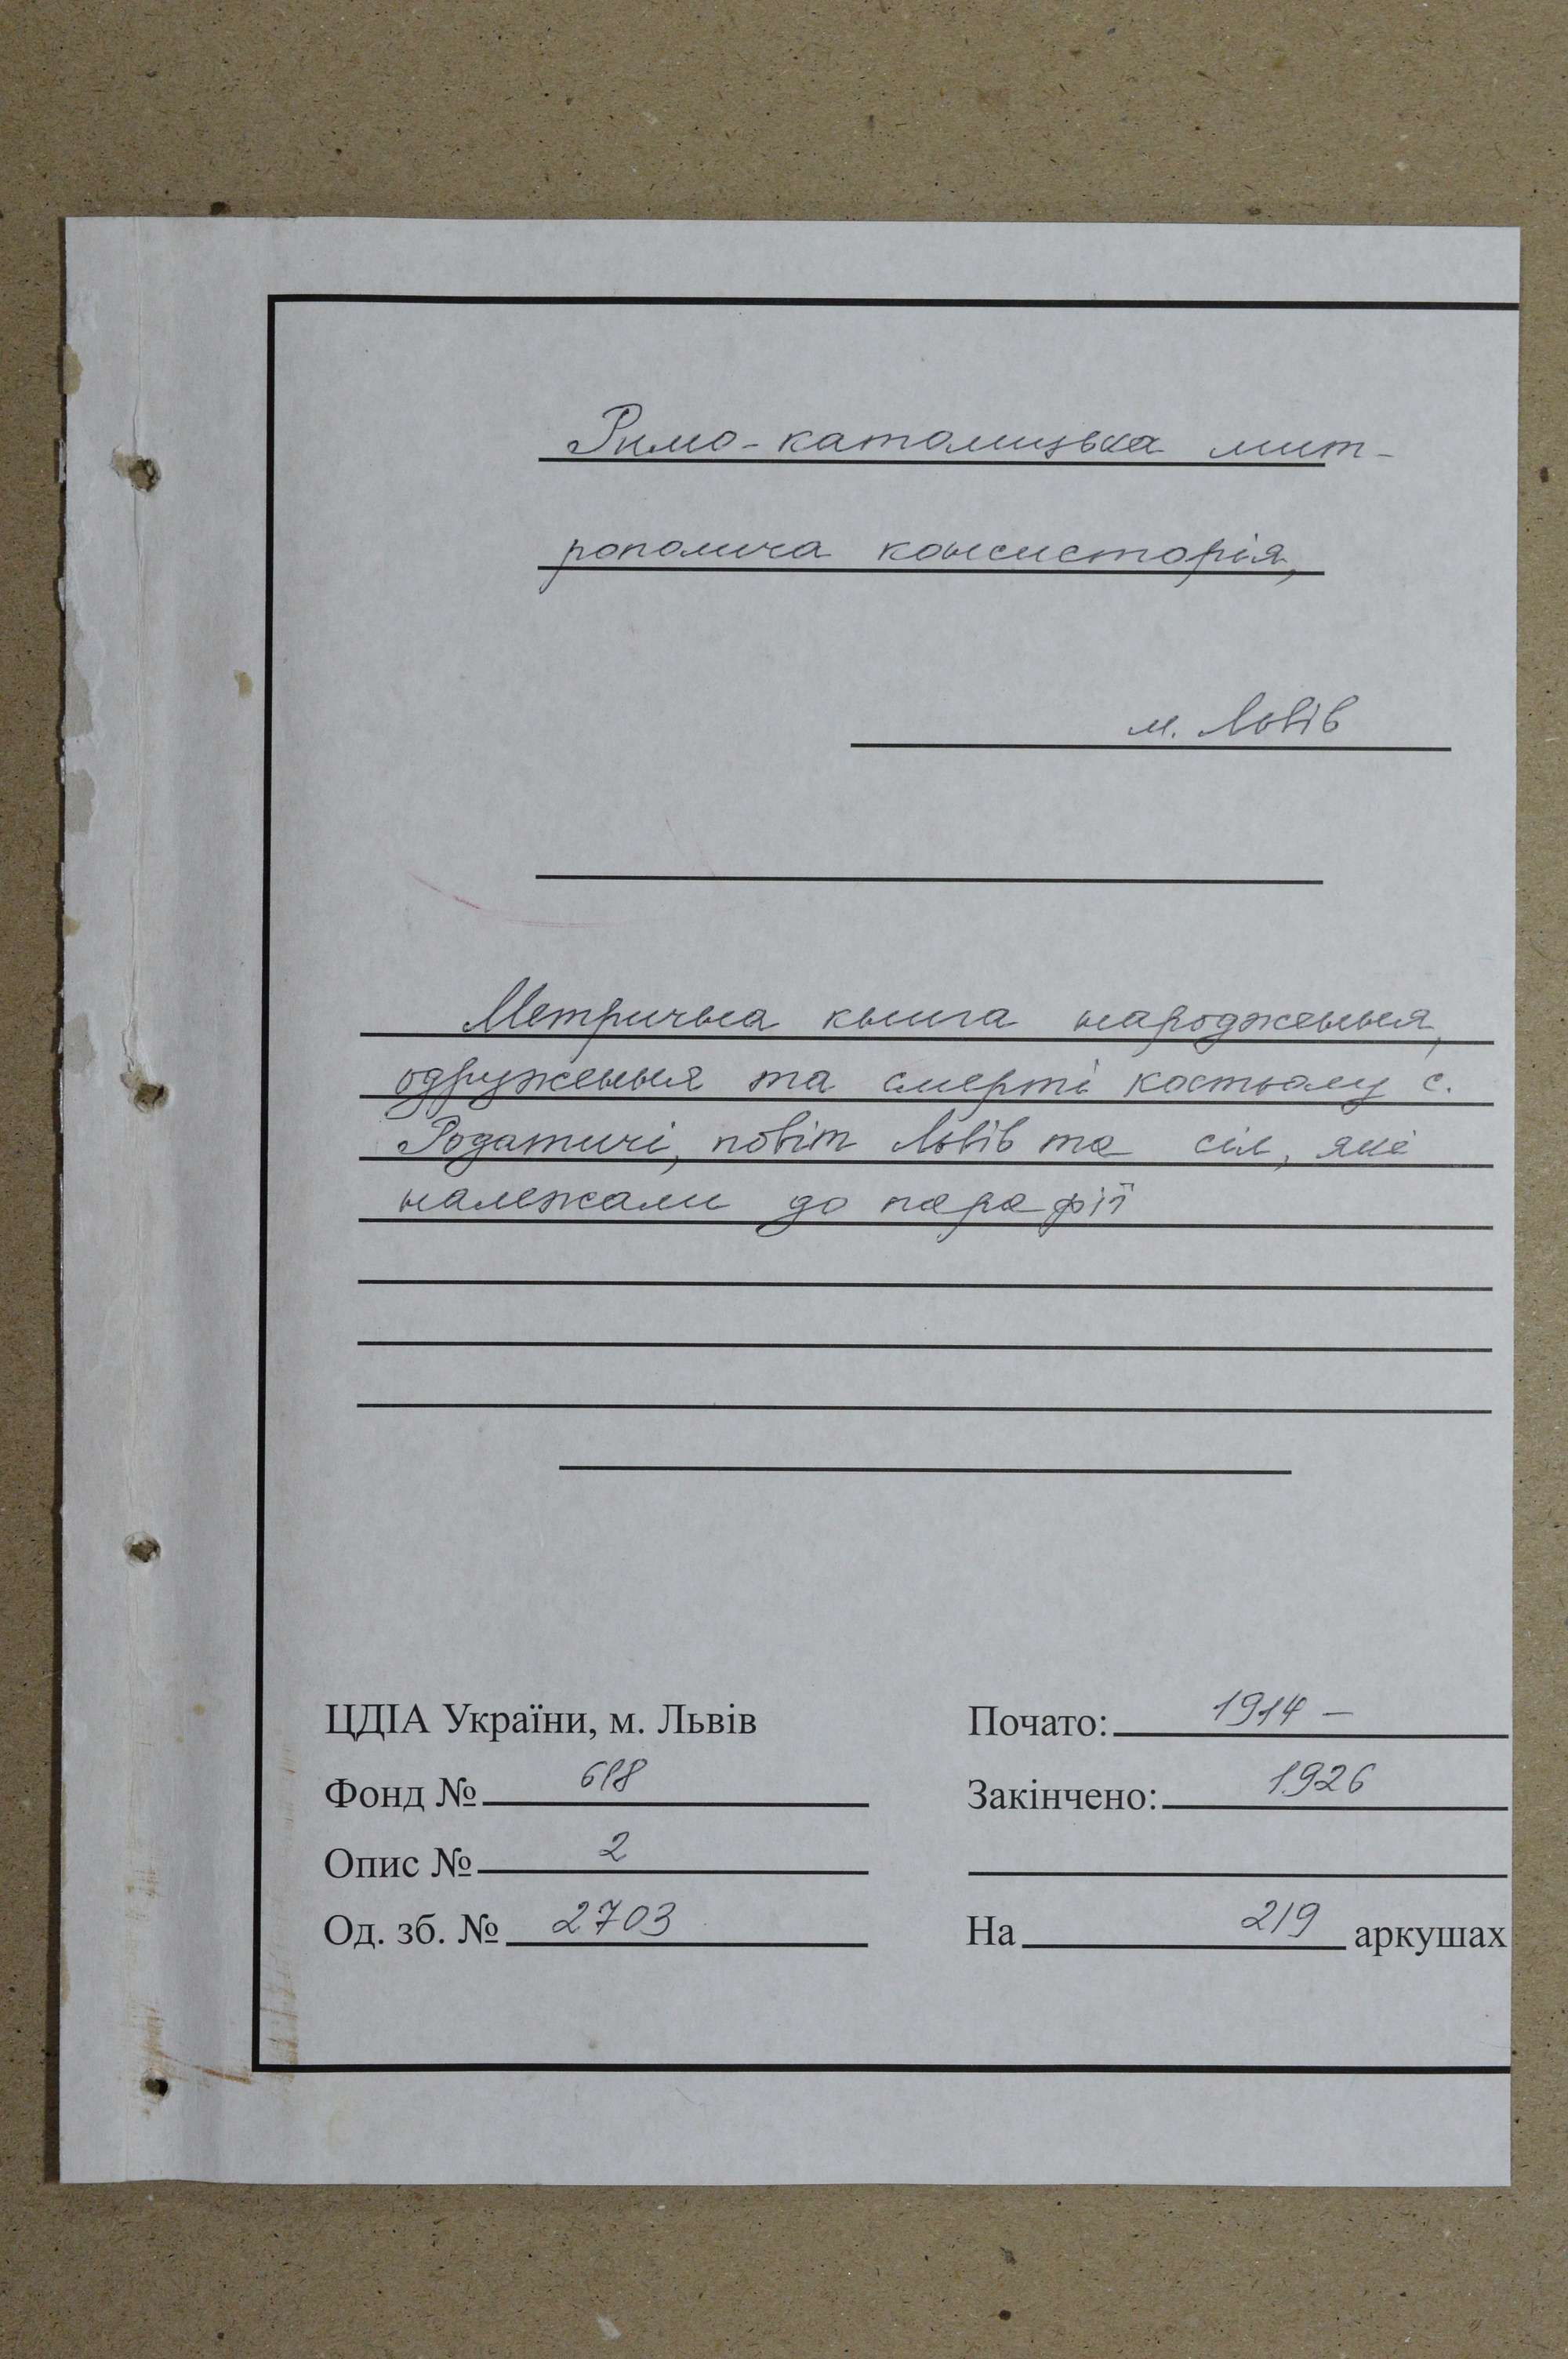 Римо-католицька мит-
рополича консисторія,
м. Львів
Метрична книга народження,
одруження та смерті костьолу с.
Родатичі, повіт Львів та сіл, які
належали до парафії
ЦДІА України, м. Львів
Почато: 1914 –
Фонд № 618
Закінчено: 1926
Опис № 2
Од. зб. № 2703
На 219 аркушах